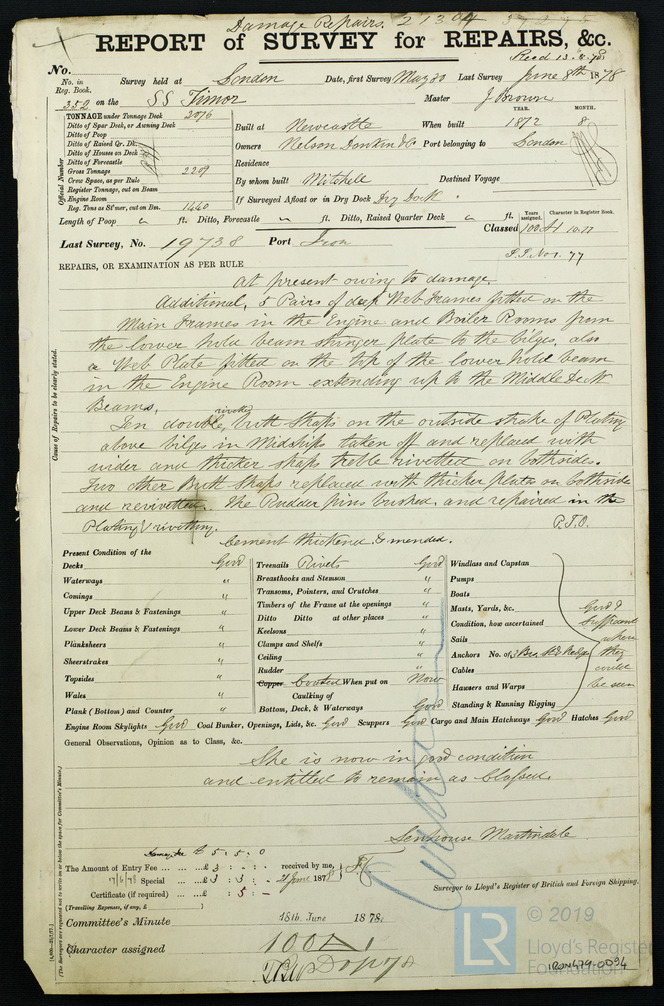 Damage Repairs. 21394
REPORT of SURVEY for REPAIRS, &c.
Recd 13.6.78
No.
No. in Reg. Book. Survey held at London Date, first Survey May 20 Last Survey June 8th 1878
352 on the SS Timor Master J Brown
TONNAGE under Tonnage Deck 2076
Ditto of Spar Deck, or Awning Deck
Ditto of Poop
Ditto of Raised Qr. Dk.
Ditto of Houses on Deck
Ditto of Forecastle
Gross Tonnage 2209
Crew Space, as per Rule
Register Tonnage, cut on Beam
Engine Room
Reg. Tons as St'mer, cut on Bm. 1440
Official Number
YEAR. MONTH.
Built at Newcastle When built 1872 8
Owners Nelson Donkin & Co Port belonging to London
Residence
By whom built Mitchell Destined Voyage
If Surveyed Afloat or in Dry Dock Dry Dock
Length of Poop " ft. Ditto, Forecastle " ft. Ditto, Raised Quarter Deck " ft.
Years assigned. Character in Register Book.
Classed 100 A1 10.77
Last Survey, No. 19738 Port Iron
S.S. No 1. 77
REPAIRS, OR EXAMINATION AS PER RULE
at present owing to damage.
Additional, 5 Pairs of deep Web Frames fitted on the
Main Frames in the Engine and Boiler Rooms from
the lower hold beam stringer plate to the bilges, also
a Web Plate fitted on the top of the lower hold beam
in the Engine Room extending up to the Middle Deck
Beams,
Ten double, rivetted butt straps on the outside strake of Plating
above bilges in Midships taken off and replaced with
wider and thicker straps treble rivetted on bothsides.
Two other Butt straps replaced with thicker plates on bothside
and rerivetted. The Rudder pins bushed, and repaired in the
Plating & rivetting.
P.T.O.
Cement thickend & mended.
Cause of Repairs to be clearly stated.
Present Condition of the
Decks Good
Waterways "
Comings "
Upper Deck Beams & Fastenings "
Lower Deck Beams & Fastenings "
Planksheers "
Sheerstrakes "
Topsides "
Wales "
Plank (Bottom) and Counter "
Treenails Rivets Good
Breasthooks and Stemson "
Transoms, Pointers, and Crutches "
Timbers of the Frame at the openings "
Ditto Ditto at other places "
Keelsons "
Clamps and Shelfs "
Ceiling "
Rudder "
Copper Coated When put on Now
Caulking of
Bottom, Deck, & Waterways Good
Windlass and Capstan
Pumps
Boats
Masts, Yards, &c.
Condition, how ascertained
Sails
Anchors No. of 3 Brs. St & Kedge
Cables
Hawsers and Warps
Standing & Running Rigging
Good &
Sufficient
where
they
could
be seen
Engine Room Skylights Good Coal Bunker, Openings, Lids, &c. Good Scuppers Good Cargo and Main Hatchways Good Hatches Good
General Observations, Opinion as to Class, &c.
She is now in good condition
and entitled to remain as Classed.
Senhouse Martindale
5 : 5 : 0
The Amount of Entry Fee £ 3 : - : - received by me,
17/6/78 Special £ 3 : 3 : - 21 June 1878
Certificate (if required) : 5 : -
(Travelling Expenses, if any, £ )
Surveyor to Lloyd's Register of British and Foreign Shipping.
Committee's Minute 18th June 1878.
Character assigned 100A1
(The Surveyors are requested not to write on or below the space for Committee's Minute.)
© 2019
LR Lloyd's Register
Foundation
IRON479-0094